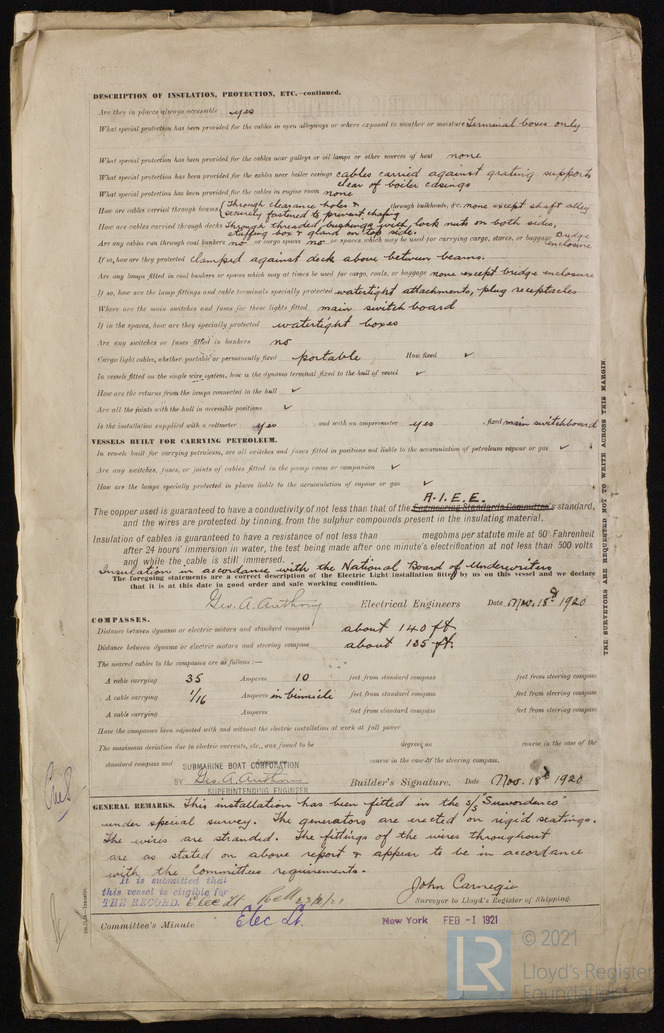 DESCRIPTION OF INSULATION, PROTECTION, ETC.—continued.
Are they in places always accessible yes
What special protection has been provided for the cables in open alleyways or where exposed to weather or moisture Terminal boxes only
What special protection has been provided for the cables near galleys or oil lamps or other sources of heat none
What special protection has been provided for the cables near boiler casings cables carried against grating supports
clear of boiler casings
What special protection has been provided for the cables in engine room none
How are cables carried through beams { Through clearance holes & through bulkheads, &c. none except shaft alley
securely fastened to prevent chafing
How are cables carried through decks Through threaded bushings with lock nuts on both sides,
stuffing box & gland on top side.
Are any cables run through coal bunkers no or cargo spaces no or spaces which may be used for carrying cargo, stores, or baggage Bridge enclosure
If so, how are they protected clamped against deck above between beams.
Are any lamps fitted in coal bunkers or spaces which may at times be used for cargo, coals, or baggage none except bridge enclosure
If so, how are the lamp fittings and cable terminals specially protected watertight attachments, plug receptacles
Where are the main switches and fuses for these lights fitted main switch board
If in the spaces, how are they specially protected watertight boxes
Are any switches or fuses fitted in bunkers no
Cargo light cables, whether portable or permanently fixed portable How fixed ✓
In vessels fitted on the single wire system, how is the dynamo terminal fixed to the hull of vessel ✓
How are the returns from the lamps connected to the hull ✓
Are all the joints with the hull in accessible positions ✓
Is the installation supplied with a voltmeter yes , and with an amperemeter yes , fixed main switchboard
VESSELS BUILT FOR CARRYING PETROLEUM.
In vessels built for carrying petroleum, are all switches and fuses fitted in positions not liable to the accumulation of petroleum vapour or gas ✓
Are any switches, fuses, or joints of cables fitted in the pump room or companion ✓
How are the lamps specially protected in places liable to the accumulation of vapour or gas ✓
A.I.E.E.
The copper used is guaranteed to have a conductivity of not less than that of the Engineering Standards Committee's standard,
and the wires are protected by tinning from the sulphur compounds present in the insulating material.
Insulation of cables is guaranteed to have a resistance of not less than megohms per statute mile at 60° Fahrenheit
after 24 hours' immersion in water, the test being made after one minute's electrification at not less than 500 volts
and while the cable is still immersed.
Insulation in accordance with the National Board of Underwriters
The foregoing statements are a correct description of the Electric Light installation fitted by us on this vessel and we declare
that it is at this date in good order and safe working condition.
Geo. A. Anthony Electrical Engineers Date Nov. 18th 1920
COMPASSES.
Distance between dynamo or electric motors and standard compass about 140 ft
Distance between dynamo or electric motors and steering compass about 135 ft.
The nearest cables to the compasses are as follows:—
A cable carrying 35 Amperes 10 feet from standard compass feet from steering compass
A cable carrying 1/16 Amperes in binnacle feet from standard compass feet from steering compass
A cable carrying Amperes feet from standard compass feet from steering compass
Have the compasses been adjusted with and without the electric installation at work at full power
The maximum deviation due to electric currents, etc., was found to be degrees on course in the case of the
standard compass and course in the case of the steering compass.
SUBMARINE BOAT CORPORATION
BY Geo. A. Anthony Builder's Signature. Date Nov. 18th 1920
SUPERINTENDING ENGINEER
GENERAL REMARKS. This installation has been fitted in the S/S "Suwordenco"
under special survey. The generators are erected on rigid seatings.
The wires are stranded. The fittings of the wires throughout
are as stated on above report & appear to be in accordance
with the Committees requirements.
It is submitted that
this vessel is eligible for
THE RECORD. Elec Lt 22/2/21
John Carnegie
Surveyor to Lloyd's Register of Shipping.
Committee's Minute Elec Lt. New York FEB -1 1921
THE SURVEYORS ARE REQUESTED NOT TO WRITE ACROSS THIS MARGIN.
LR
© 2021
Lloyd's Register
Foundation